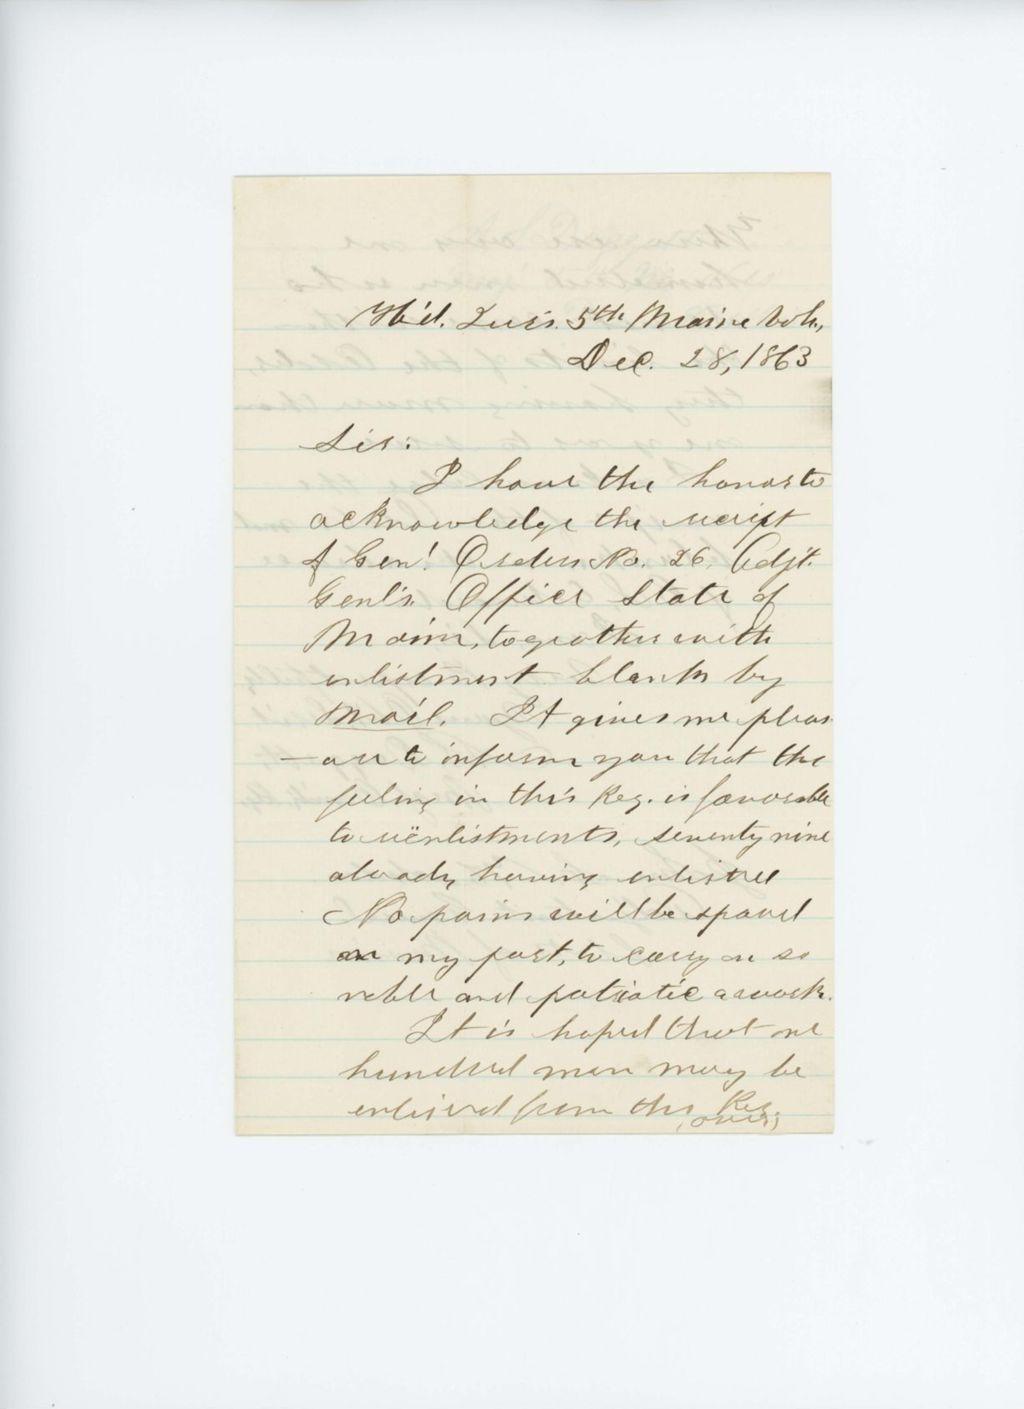 Hd. Qurs. 5th Maine Vols,
Dec. 28, 1863
Sir:
I have the honor to
acknowledge the receipt
of Gen'l Orders No. 26, Adjt.
Genl's. Office State of
Maine, together with
enlistment blanks by
mail. It gives me pleas-
-ure to inform you that the
feeling in this Reg. is favorable
to reënlistments, seventy nine
already having enlisted
No pains will be spared
on my part, to carry on so
noble and patriotic a work.
It is hoped that one
hundred men may be
enlisted from this Reg.
(over)